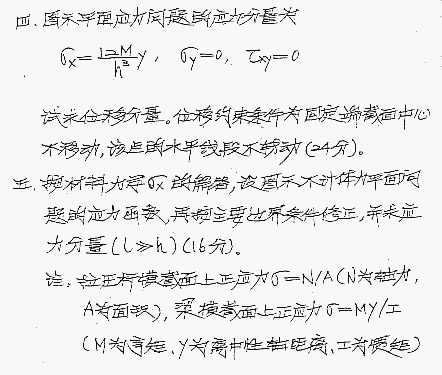 四、图示平面应力问题的应力分量为
σx=12M/h³ y, σy=0, τxy=0
试求位移分量。位移约束条件为固定端截面中心
不移动,该点的水平线段不转动(24分)。
五、按材料力学σx的解答,设图示不计体力平面问
题的应力函数,再按主要边界条件修正,并求应
力分量(l≫h)(16分)。
注:拉压杆横截面上正应力σ=N/A(N为轴力,
A为面积),梁横截面上正应力σ=MY/I
(M为弯矩、Y为离中性轴距离、I为惯矩)